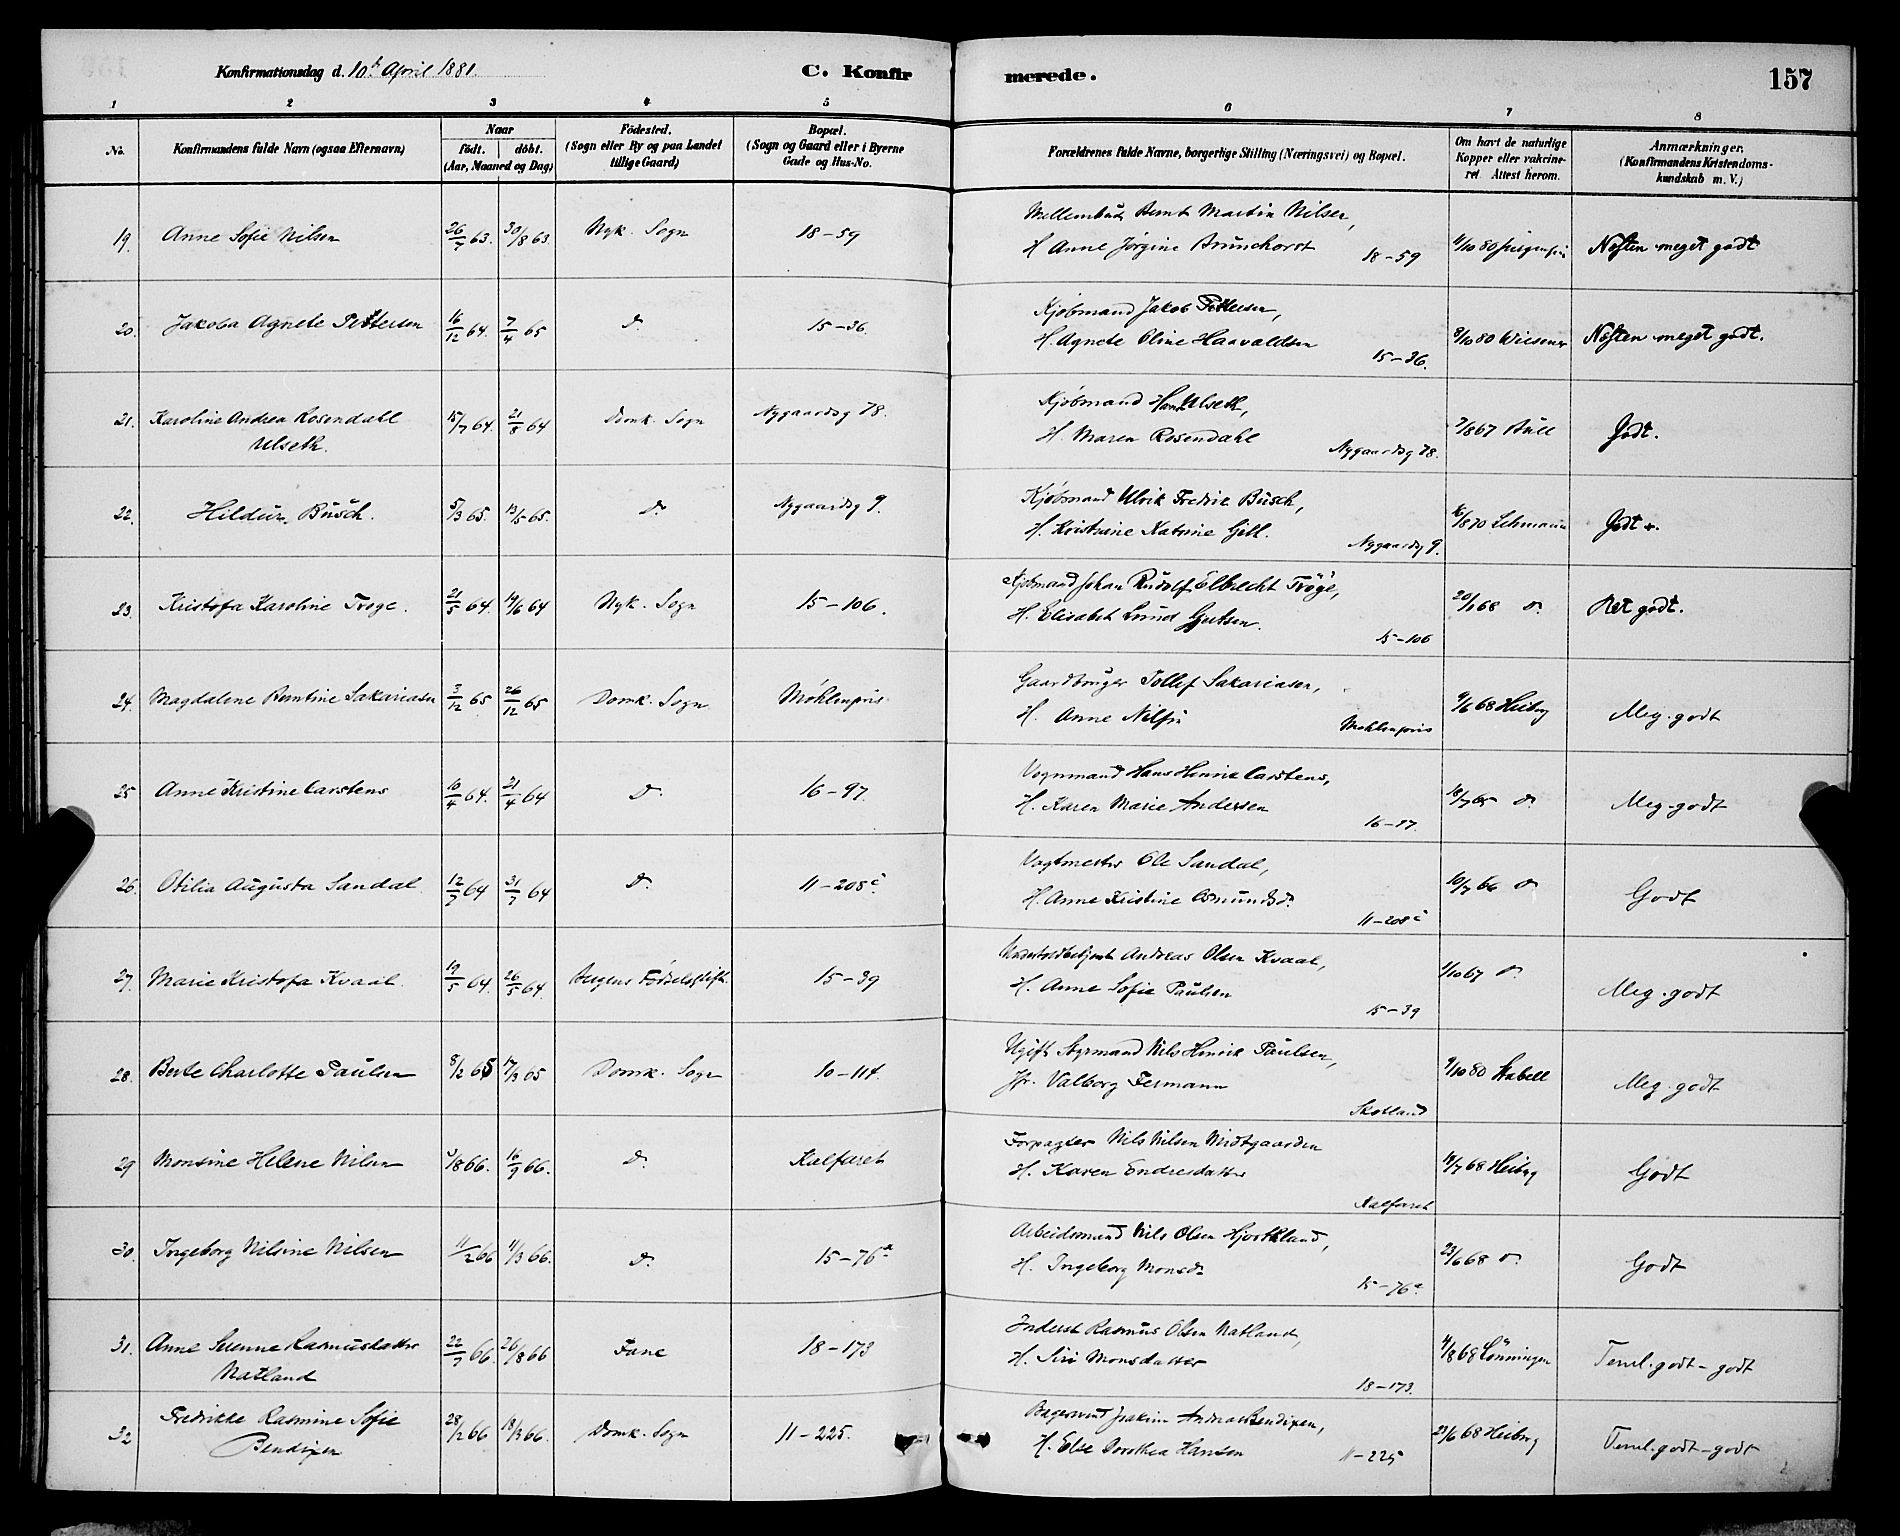 Konfirmationsdag d. 10de April 1881.
C. Konfirmerede.
157
1 2 3 4 5 6 7 8
No.
Konfirmandens fulde Navn (ogsaa Efternavn)
Naar
födt. döbt.
(Aar, Maaned og Dag)
Födested.
(Sogn eller By og paa Landet
tillige Gaard)
Bopæl.
(Sogn og Gaard eller i Byerne
Gade og Hus-No.
Forældrenes fulde Navne, borgerlige Stilling (Næringsvei) og Bopæl.
Om havt de naturlige
Kopper eller vakcine-
ret. Attest herom.
Anmærkninger.
(Konfirmandens Kristendoms-
kundskab m. V.)
19. Anne Sofie Nilsen 26/7 63. 30/8 63. Nyk. Sogn 18-59
Bernt Martin Nilsen,
H. Anne Jørgine Brunchorst 18-59
4/10 80 Næsten meget godt
20. Jakoba Agnete Pettersen 16/12 64. 7/4 65 do 15-36.
Kjøbmand Jakob Pettersen,
H. Agnete Oline Haavaldsen 15-36.
8/10 80 Wiesener Næsten meget godt.
21. Karoline Andrea Rosendahl
Ulseth. 15/7 64. 21/8 64 Domk. Sogn Nygaardsg 78.
Kjøbmand Hans Ulseth,
H. Maren Rosendahl Nygaardsg 78.
7/8 67 Bull Godt.
22. Hildur Busch. 5/3 65. 13/5 65. do Nygaardsg 9.
Kjøbmand Ulrik Fredrik Busch,
H. Kristine Katrine Gjell. Nygaardsg 9.
/8 70 Lehmann Godt +.
23. Kristofa Karoline Trøge. 21/5 64. 19/6 64 Nyk. Sogn 15-106.
Kjøbmand Johan Rudolf Elbrecht Trøge,
H. Elisabet Lund Gjertsen. 15-106
20/1 68 do Ret godt.
24. Magdalene Berntine Sakariasen 3/12 65 26/12 65 Domk. Sogn Møhlenpris
Gaardbruger Tollef Sakariasen,
H. Anne Nilsen Møhlenpris
9/6 68 Heiberg Meg. godt
25 Anne Kristine Carstens 16/4 64. 21/4 64 do 16-97.
Vognmand Hans Henrik Carstens,
H. Karen Marie Andersen 16-97.
18/7 65 do Meg. godt
26. Otilia Augusta Sandal 12/7 64 31/7 64 do 11-208c.
Vagtmester Ole Sandal,
H. Anne Kristine Osmundsd. 11-208c
10/7 66 do Godt
27. Marie Kristofa Kvaal. 19/5 64. 26/5 64. Bergens Fødselsstift. 15-39
Andreas Olsen Kvaal,
H. Anne Sofie Paulsen 15-39
1/10 67 do Meg. godt
28. Berte Charlotte Paulsen 8/2 65 17/3 65 Domk. Sogn 10-114.
Ugift Styrmand Nils Henrik Paulsen,
Jfr. Valborg Fermann Skotland
9/10 80 Stabell Meg. godt
29 Monsine Helene Nilsen /8 66. 16/9 66. do Kalfaret
Forpagter Nils Nilsen Midtgaarden
H. Karen Endresdatter Kalfaret
14/7 68 Heiberg Godt
30. Ingeborg Nilsine Nilsen 11/2 66 11/3 66. do 15-76a
Arbeidsmand Nils Olsen Hjortland,
H. Ingeborg Monsdr 15-76a
23/6 68 do Godt
31. Anne Serenne Rasmusdatter
Natland 22/7 66. 26/8 66 Fane 18-173
Inderst Rasmus Olsen Natland,
H. Siri Monsdatter 18-173.
4/8 68 Lønningen Temel. godt - godt
32 Fredrikke Rasmine Sofie
Bendixen 28/2 66 18/3 66. Domk. Sogn 11-225.
Bagersvend Joakim Andreas Bendixen,
H. Else Dorothea Hansen 11-225
23/6 68 Heiberg Temel. godt - godt